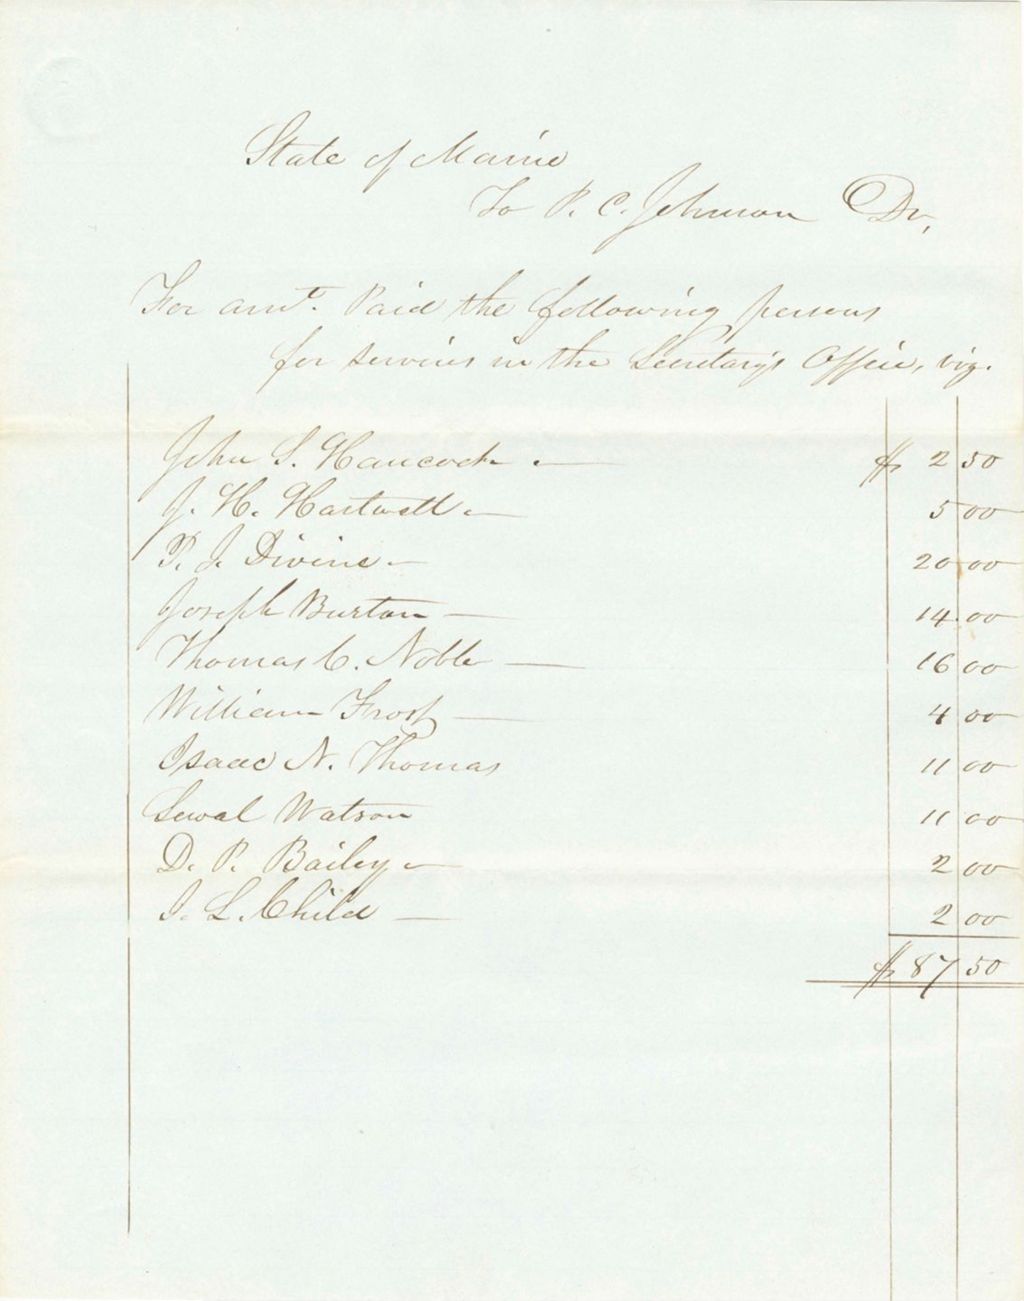 State of Maine
To P. C. Johnson Dr,
For amt. Paid the following persons
for services in the Secretary's Office, viz.
John S. Hancock. — $ 2 50
J. H. Hartwell. — 5 00
P. J. Divine — 20 00
Joseph Burton — 14.00
Thomas C. Noble — 16 00
William Frost — 4 00
Isaac N. Thomas 11 00
Sewal Watson 11 00
D. P. Bailey — 2 00
J. L. Child — 2 00
$ 87 50